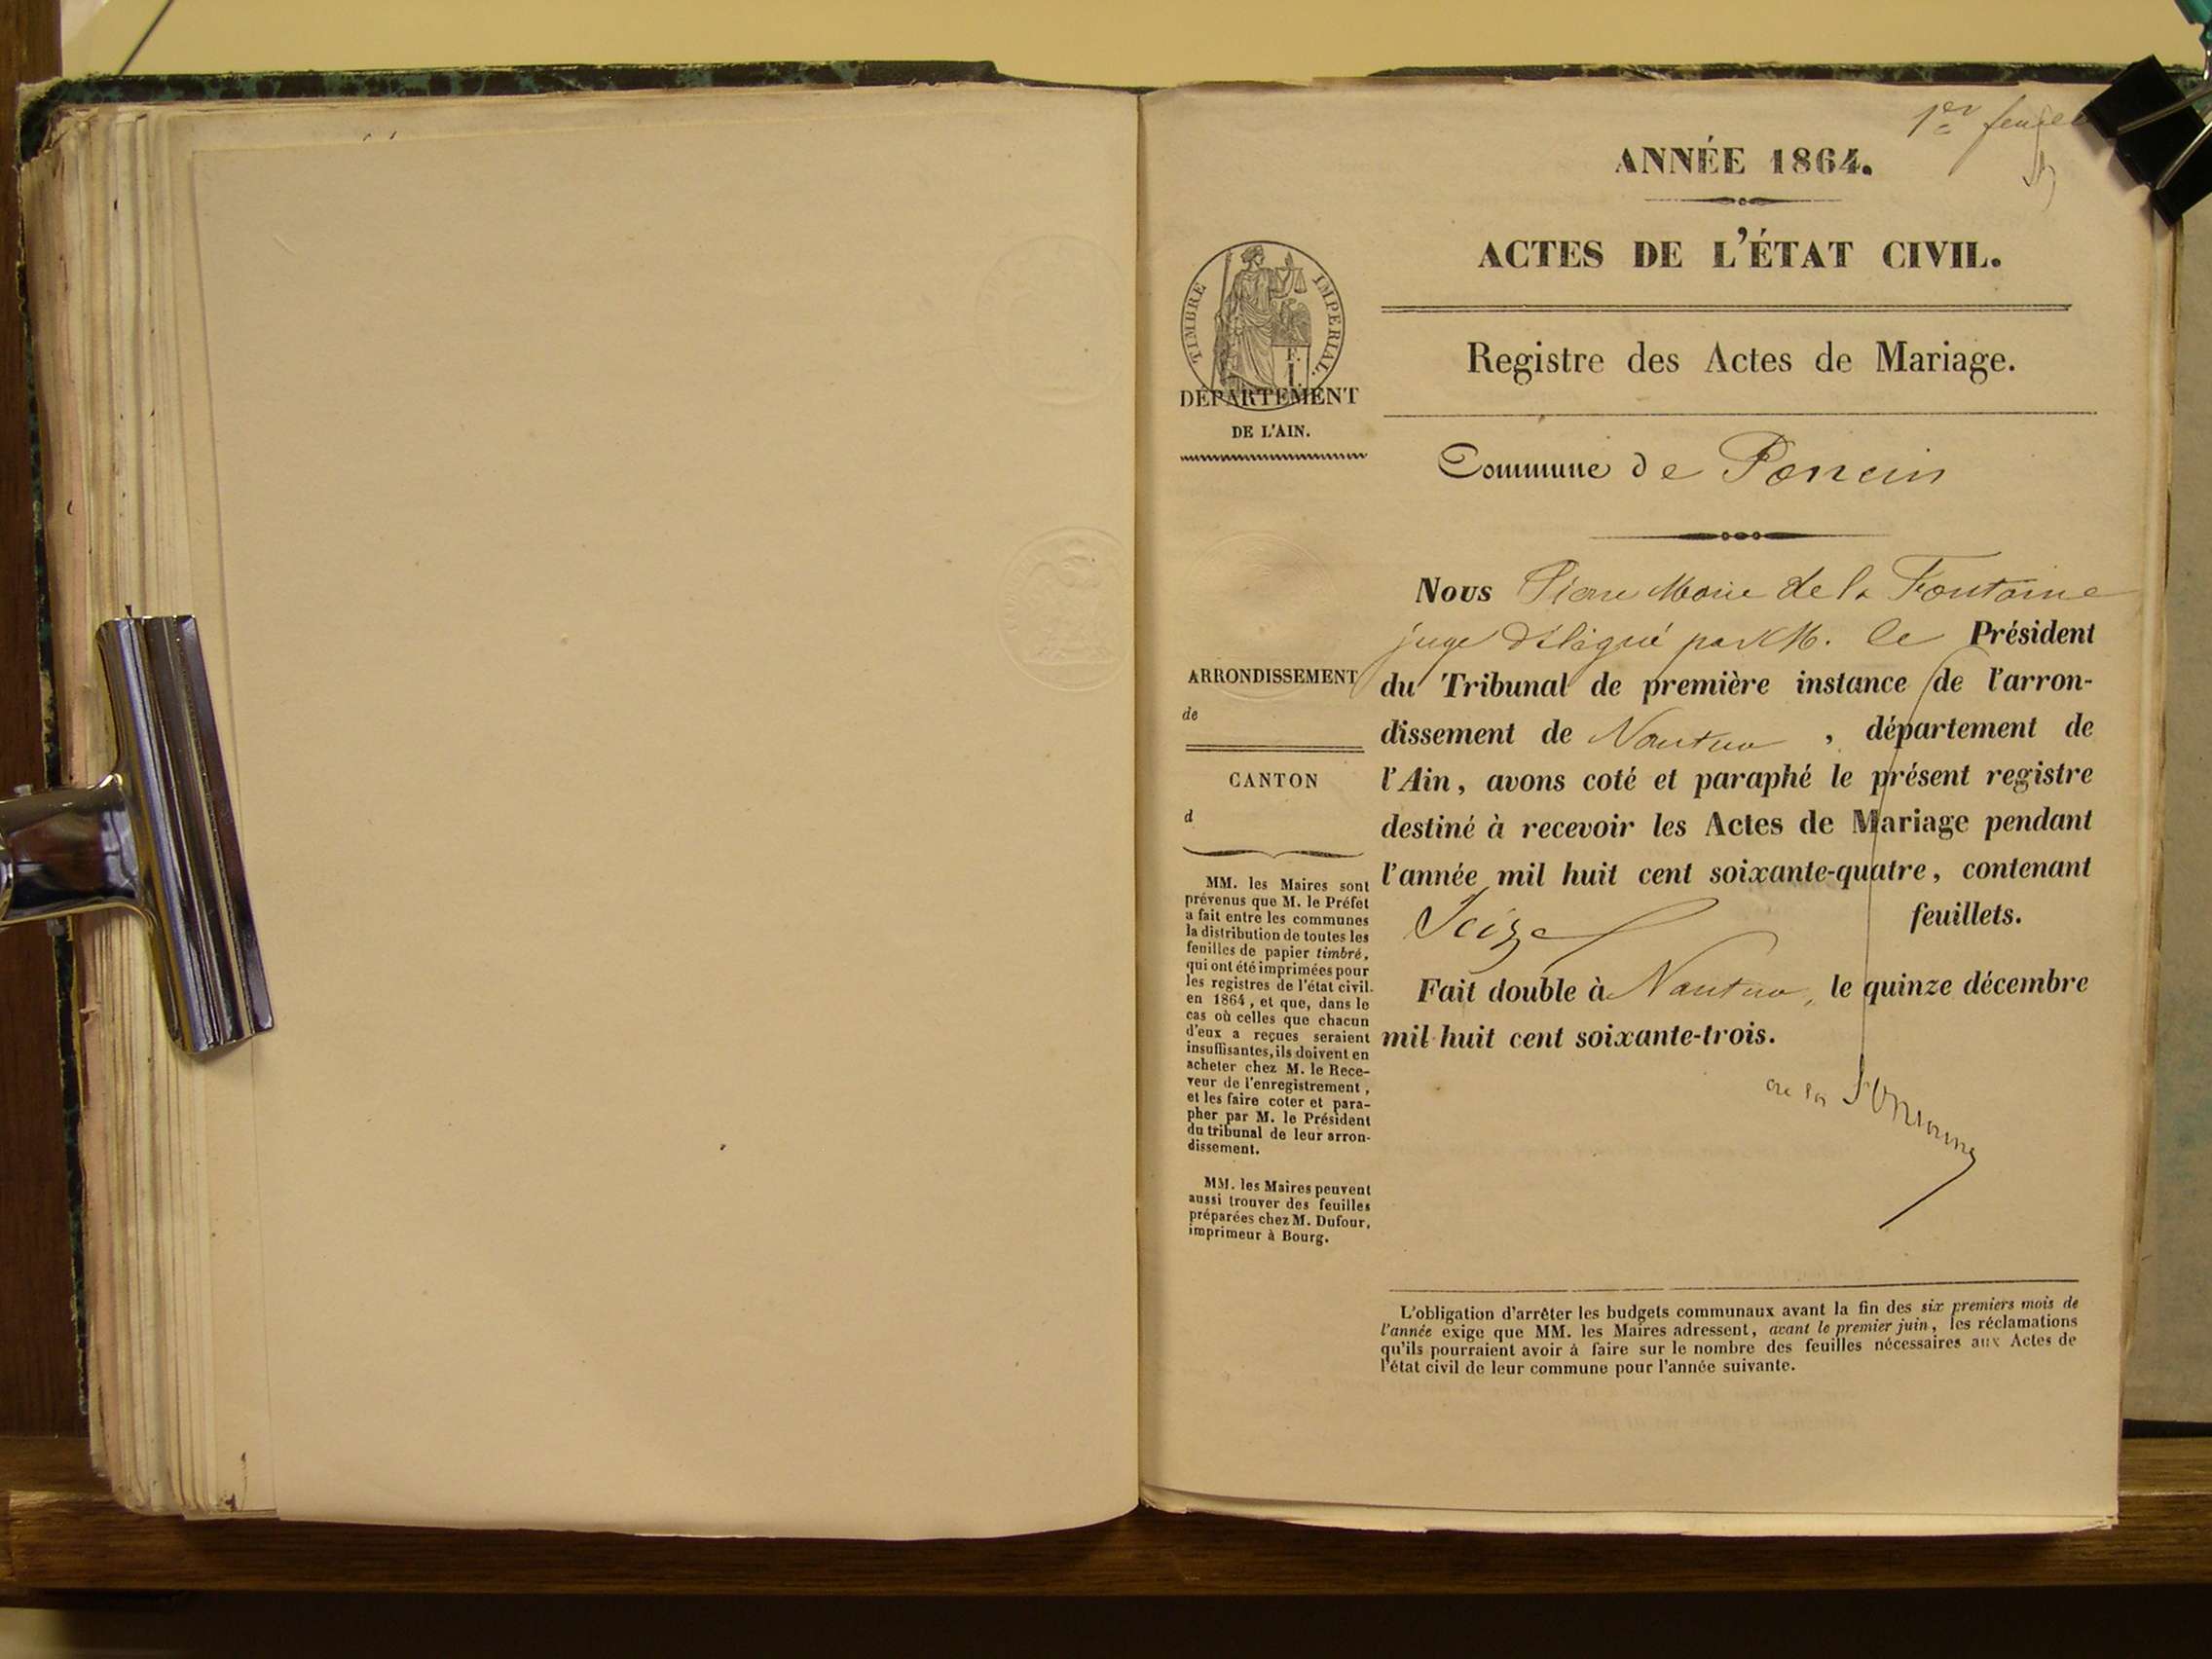 1er
ANNÉE 1864.
ACTES DE L'ÉTAT CIVIL.
TIMBRE IMPERIAL.
Registre des Actes de Mariage.
DÉPARTEMENT
DE L'AIN.
Commune de Poncin
Nous Pierre Marie de la Fontaine
juge délégué par M. le Président
du Tribunal de première instance de l'arron-
dissement de Nantua, département de
l'Ain, avons coté et paraphé le présent registre
destiné à recevoir les Actes de Mariage pendant
l'année mil huit cent soixante-quatre, contenant
Seize feuillets.
Fait double à Nantua, le quinze décembre
mil huit cent soixante-trois.
de la Fontaine
ARRONDISSEMENT
de
CANTON
d
MM. les Maires sont
prévenus que M. le Préfet
a fait entre les communes
la distribution de toutes les
feuilles de papier timbré,
qui ont été imprimées pour
les registres de l'état civil.
en 1864, et que, dans le
cas où celles que chacun
d'eux a reçues seraient
insuffisantes, ils doivent en
acheter chez M. le Rece-
veur de l'enregistrement,
et les faire coter et para-
pher par M. le Président
du tribunal de leur arron-
dissement.
MM. les Maires peuvent
aussi trouver des feuilles
préparées chez M. Dufour,
imprimeur à Bourg.
L'obligation d'arrêter les budgets communaux avant la fin des six premiers mois de
l'année exige que MM. les Maires adressent, avant le premier juin, les réclamations
qu'ils pourraient avoir à faire sur le nombre des feuilles nécessaires aux Actes de
l'état civil de leur commune pour l'année suivante.